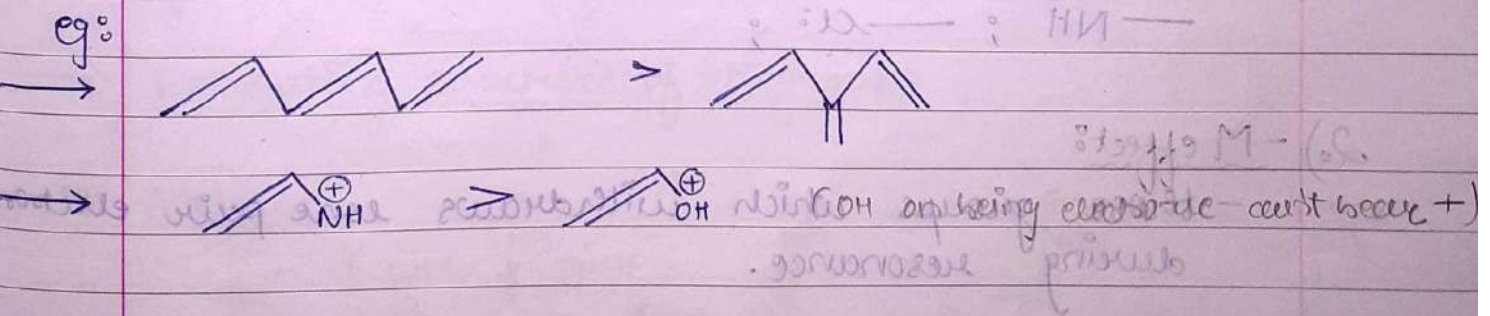 eg:
>
⊕ NH > ⊕ OH (OH on being electro-ve can't bear +)